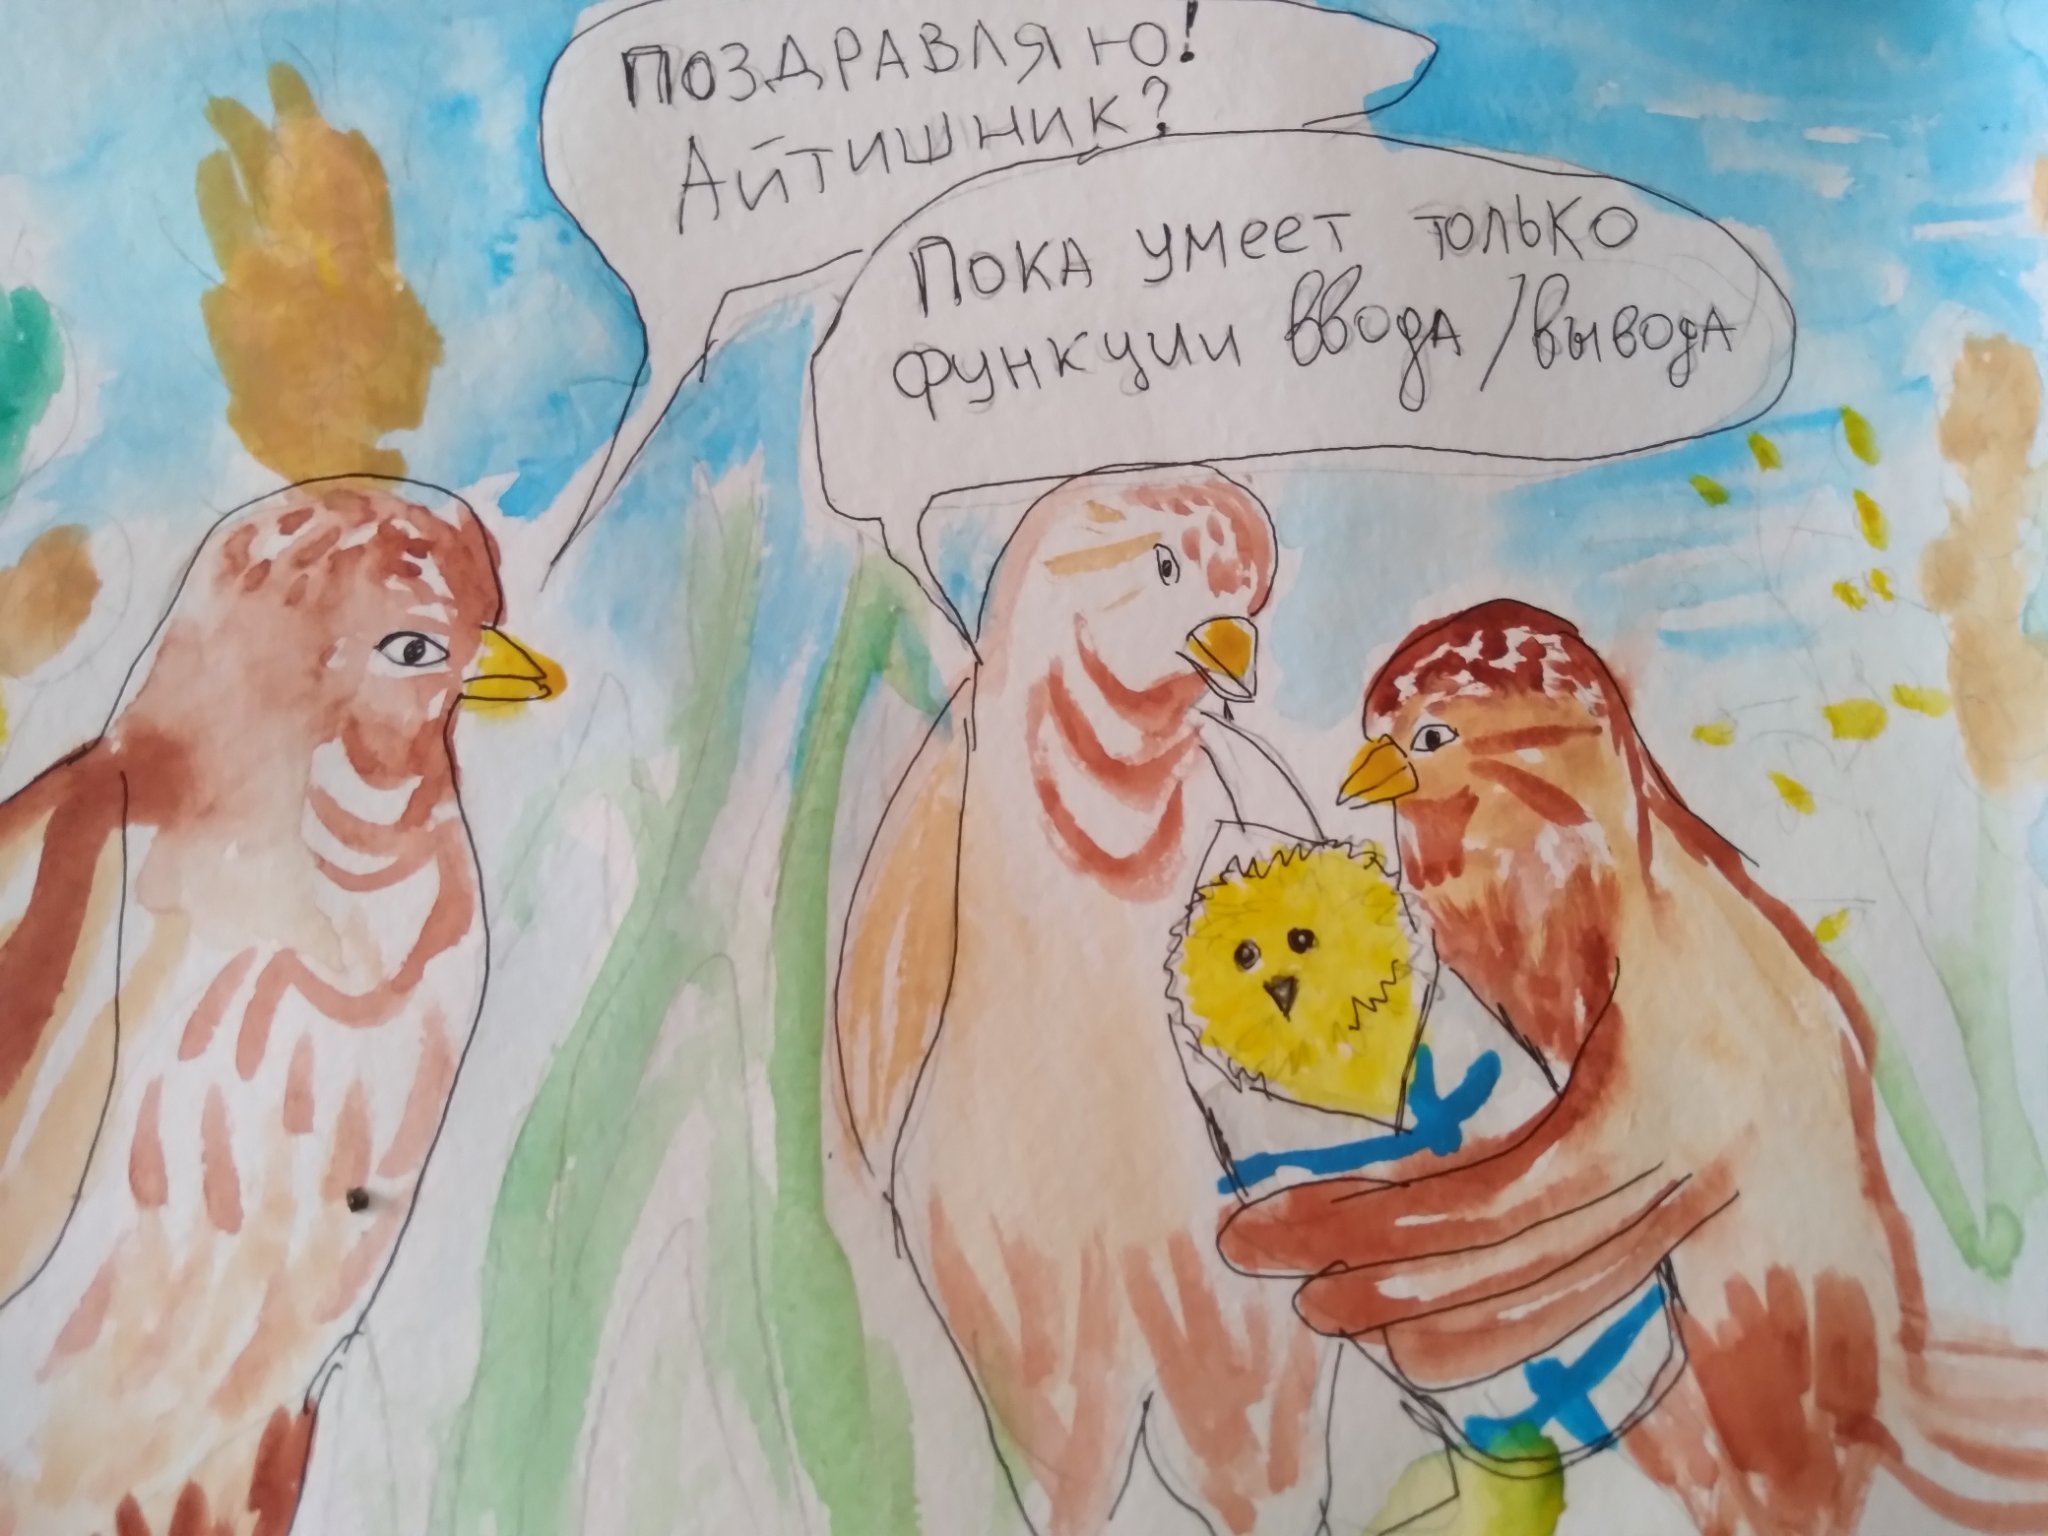 ПОЗДРАВЛЯЮ!
АЙТИШНИК?
ПОКА УМЕЕТ ТОЛЬКО
ФУНКЦИИ ВВОДА/ВЫВОДА